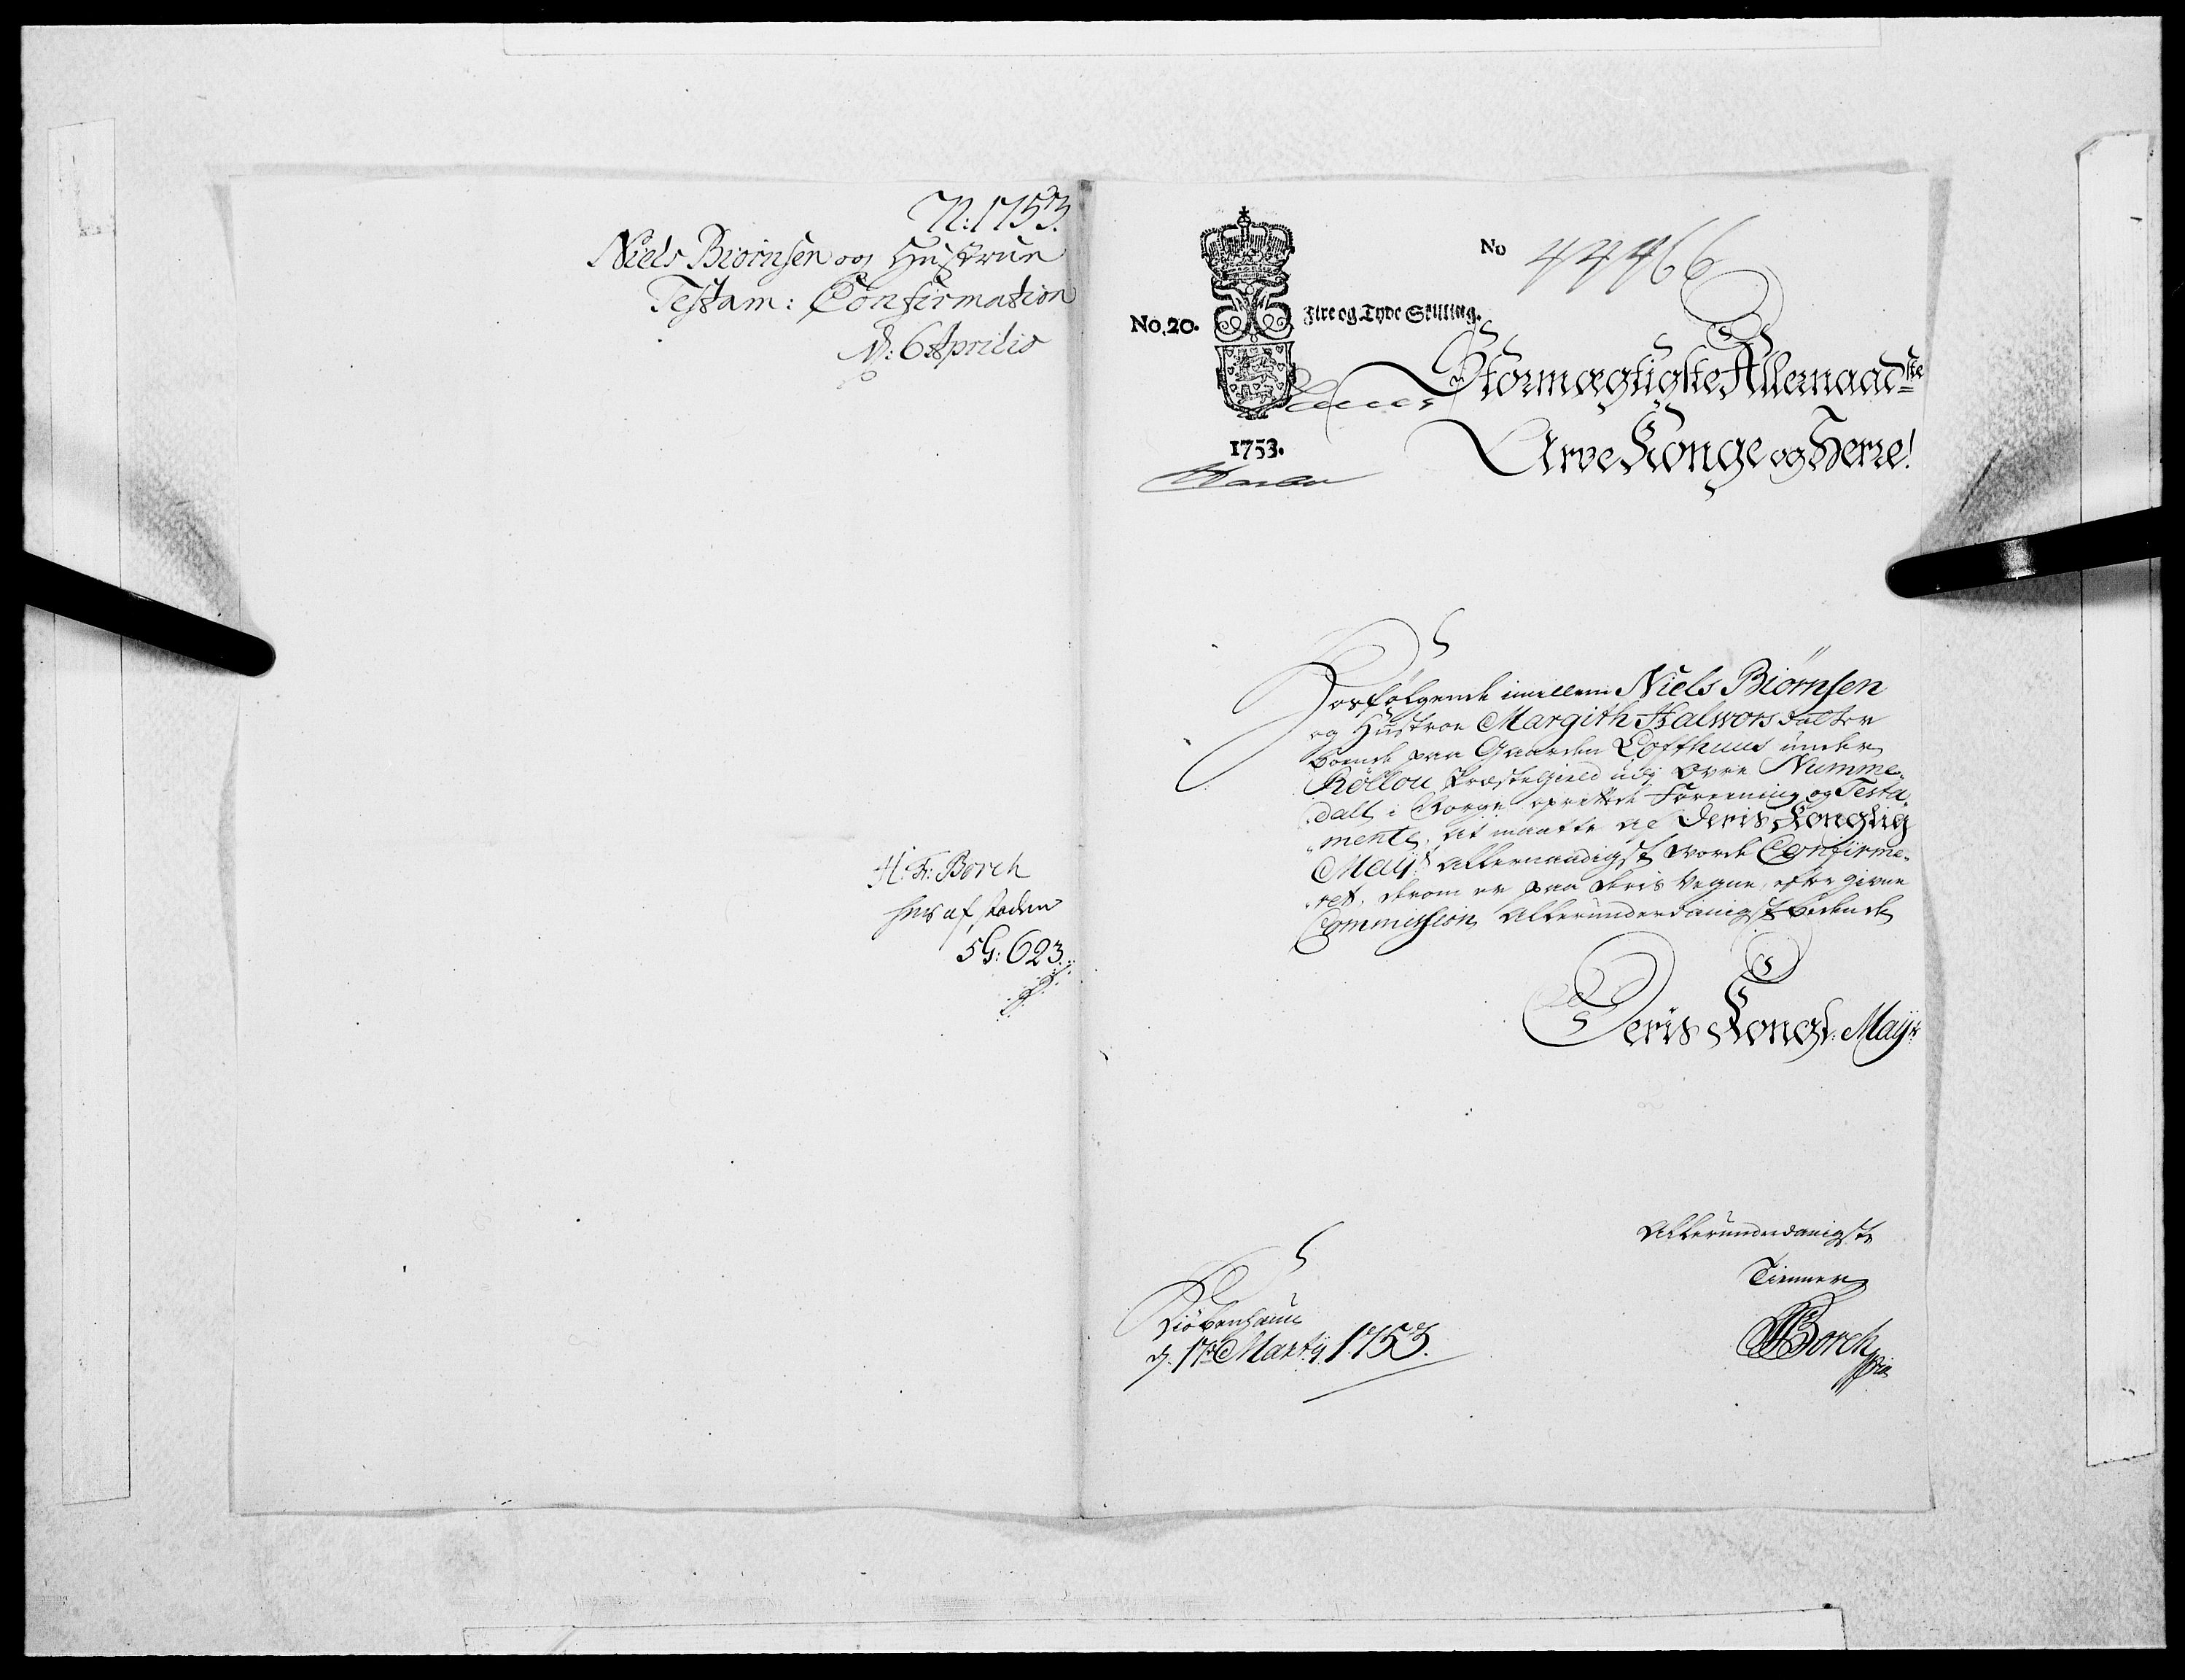 N: 1753.
Niels Biørnsen og Hustrue
Testam: Confirmation
D: 6 Aprilis
H: F: Borch
her af staden
5G: 623.
No 44466
No. 20.
Fire og Tyve Skilling.
1753.
Stormægtigste Allernaadste
Arve Konge og Herre!
Hosfølgende imellem Niels Biørnsen
og Hustroe Margith Halworsdatter
boende paa Gaarden Loffthuus under
Röllou Præstegield udj Øvre Numme-
dall i Norge oprettede Foreening og Testa-
mente, at maatte af Deris Konglig
Mayt: Allernaadigst worde Confirme-
ret, derom er paa deris Vegne, efter givne
Commission Allerunderdanigst bedende
Deris Kongl: Mayts
Allerunderdanigste
Tienner
Borch
Kiöbenhaun
d. 17de Martij 1753.